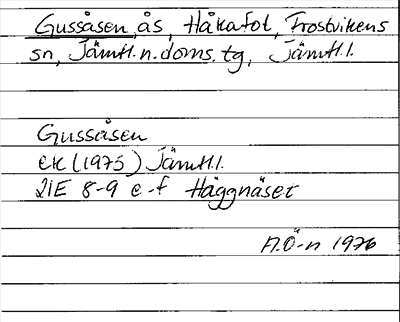 Gussåsen, ås, Håkafot, Frostvikens
sn, Jämtl.n.doms.tg, Jämtl.l.
Gussåsen
ek (1975) Jämtl.l.
21E 8-9 e-f Häggnäset
A.Ö-n 1976